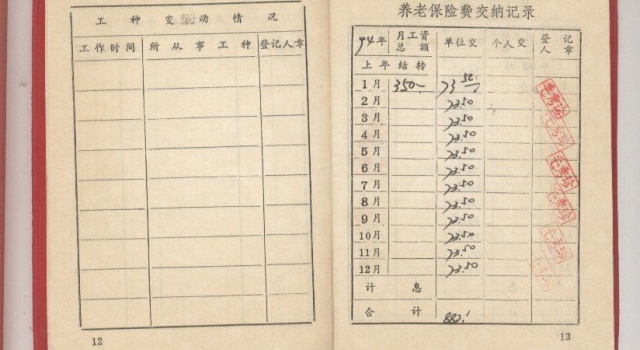 工种变动情况
工作时间 所从事工种 登记人章
12
养老保险费交纳记录
94年 月工资总额 单位交 个人交 登记人章
上年结转
1月 350- 73.50
2月 73.50
3月 73.50
4月 73.50
5月 73.50
6月 73.50
7月 73.50
8月 73.50
9月 73.50
10月 73.50
11月 73.50
12月 73.50
计息
合计 882.-
13